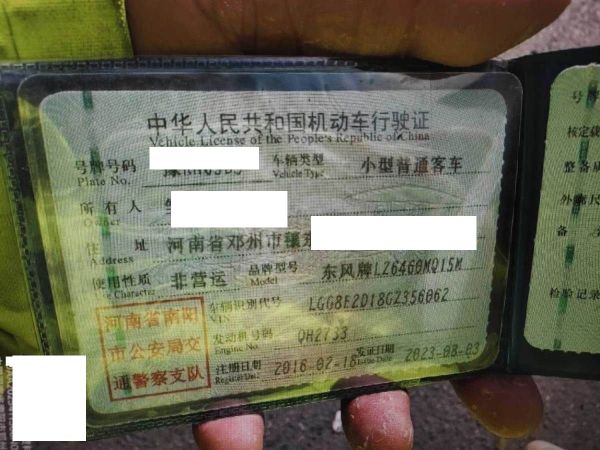 中华人民共和国机动车行驶证
Vehicle License of the People's Republic of China
号牌号码 车辆类型 小型普通客车
Plate No. Vehicle Type
所有人
Owner
住 址 河南省邓州市穰
Address
使用性质 非营运 品牌型号 东风牌LZ6460MQ15M
Use Character Model
河南省南阳
市公安局交
通警察支队
车辆识别代号 LGG8E2D18GZ356062
VIN
发动机号码 QH2733
Engine No.
注册日期 2016-02-16 发证日期 2023-08-03
Register Date Issue Date
号
核定载
整备质
外廓尺
备
检验记录